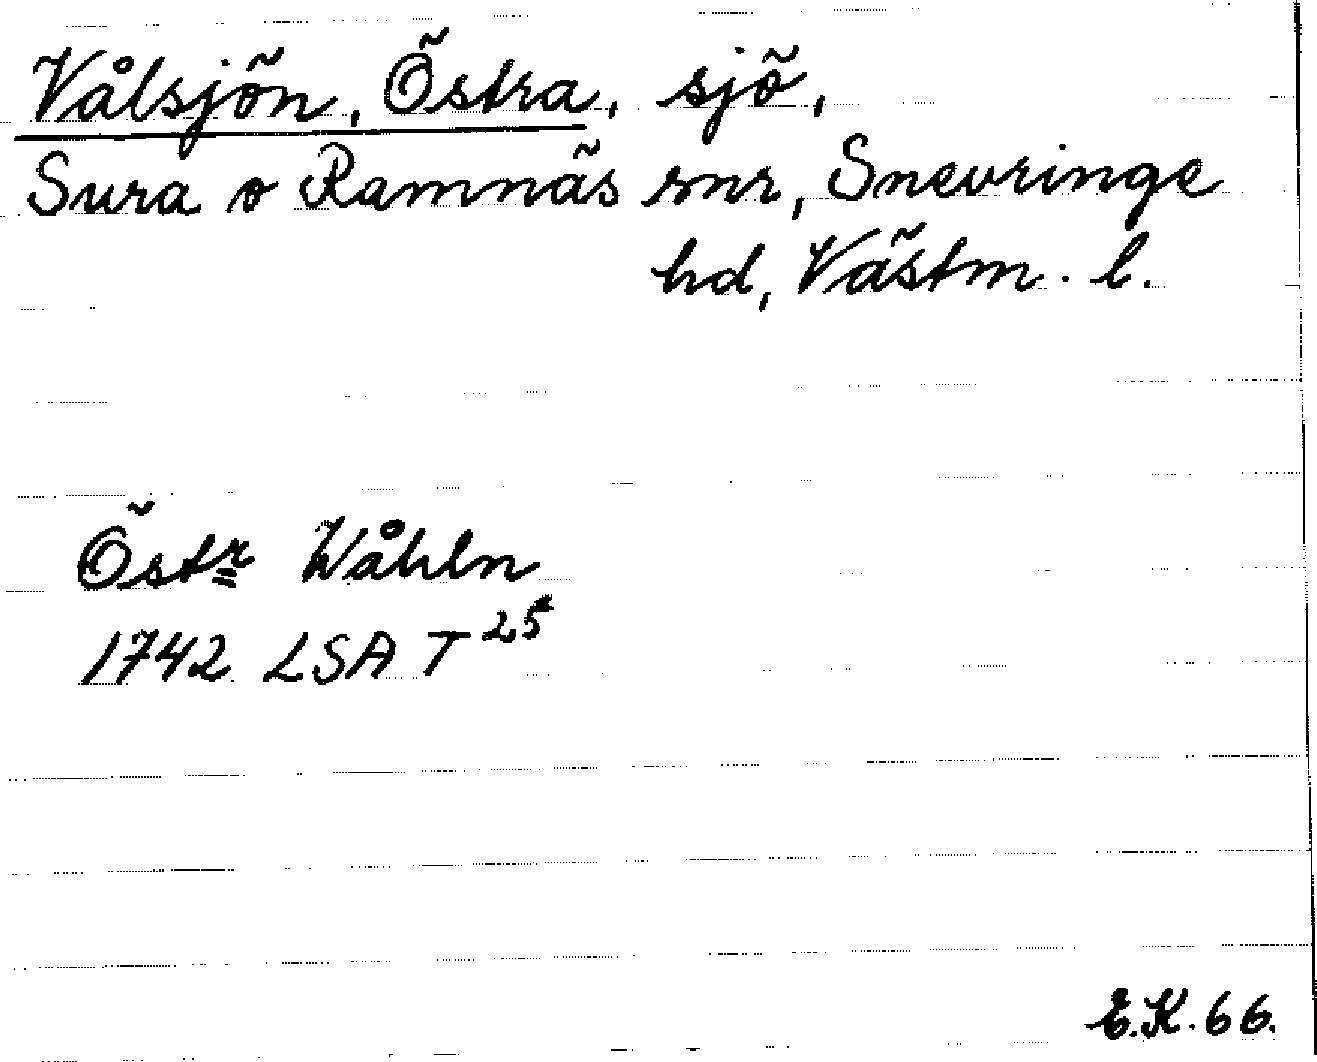 Vålsjön, Östra, sjö,
Sura o Ramnäs snr, Snevringe
hd, Västm. l.
Östr Wåhln
1742 LSA T 25
E.K. 66.